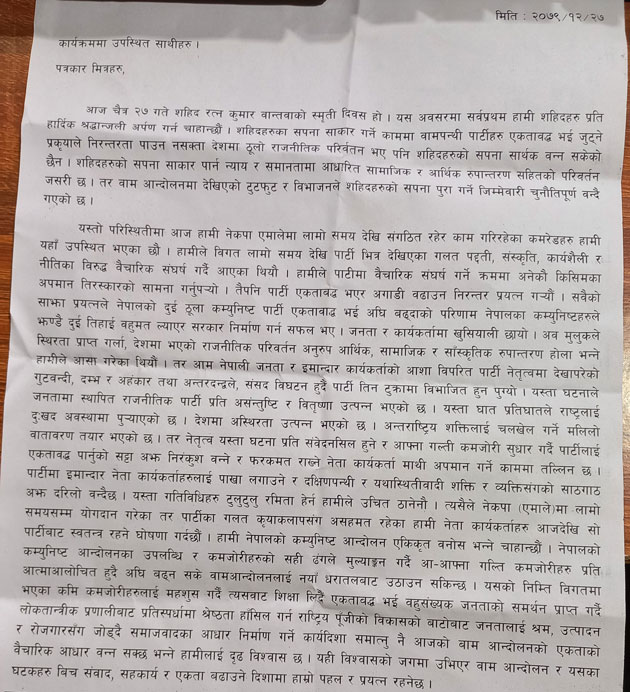 मिति : २०७९/१२/२७
कार्यक्रममा उपस्थित साथीहरु ।
पत्रकार मित्रहरु,
आज चैत्र २७ गते शहिद रत्न कुमार वान्तवाको स्मृती दिवस हो । यस अवसरमा सर्वप्रथम हामी शहिदहरु प्रति
हार्दिक श्रद्धान्जली अर्पण गर्न चाहान्छौं । शहिदहरुका सपना साकार गर्ने काममा वामपन्थी पार्टीहरु एकताबद्ध भई जुट्ने
प्रकृयाले निरन्तरता पाउन नसक्ता देशमा ठूलो राजनीतिक परिर्वतन भए पनि शहिदहरुको सपना सार्थक वन्न सकेको
छैन । शहिदहरुको सपना साकार पार्न न्याय र समानतामा आधारित सामाजिक र आर्थिक रुपान्तरण सहितको परिवर्तन
जसरी छ । तर वाम आन्दोलनमा देखिएको टुटफुट र विभाजनले शहिदहरुको सपना पुरा गर्ने जिम्मेवारी चुनौतिपूर्ण वन्दै
गएको छ ।
यस्तो परिस्थितीमा आज हामी नेकपा एमालेमा लामो समय देखि संगठित रहेर काम गरिरहेका कमरेडहरु हामी
यहाँ उपस्थित भएका छौ । हामीले विगत लामो समय देखि पार्टी भित्र देखिएका गलत पद्दती, संस्कृति, कार्यशैली र
नीतिका विरुद्ध वैचारिक संघर्ष गर्दै आएका थियौं । हामीले पार्टीमा वैचारिक संघर्ष गर्ने क्रममा अनेकौ किसिमका
अपमान तिरस्कारको सामना गर्नुपर्‍यो । तैपनि पार्टी एकताबद्ध भएर अगाडी वढाउन निरन्तर प्रयत्न गर्‍यौं । सवैको
साझा प्रयत्नले नेपालको दुई ठूला कम्युनिष्ट पार्टी एकताबद्ध भई अघि बढ्दाको परिणाम नेपालका कम्युनिष्टहरुले
झण्डै दुई तिहाई वहुमत ल्याएर सरकार निर्माण गर्न सफल भए । जनता र कार्यकर्तामा खुसियाली छायो । अव मुलुकले
स्थिरता प्राप्त गर्ला, देशमा भएको राजनीतिक परिर्वतन अनुरुप आर्थिक, सामाजिक र सांस्कृतिक रुपान्तरण होला भन्ने
हामीले आसा गरेका थियौं । तर आम नेपाली जनता र इमान्दार कार्यकर्ताको आशा विपरित पार्टी नेतृत्वमा देखापरेको
गुटवन्दी, दम्भ र अहंकार तथा अन्तरद्वन्दले, संसद विघटन हुदै पार्टी तिन टुक्रामा विभाजित हुन पुग्यो । यस्ता घटनाले
जनतामा स्थापित राजनीतिक पार्टी प्रति असंन्तुष्टि र वितृष्णा उत्पन्न भएको छ । यस्ता घात प्रतिघातले राष्ट्रलाई
दुःखद अवस्थामा पुर्‍याएको छ । देशमा अस्थिरता उत्पन्न भएको छ । अन्तराष्ट्रिय शक्तिलाई चलखेल गर्ने मलिलो
वातावरण तयार भएको छ । तर नेतृत्व यस्ता घटना प्रति संवेदनसिल हुने र आफ्ना गल्ती कमजोरी सुधार गर्दै पार्टीलाई
एकताबद्ध पार्नुको सट्टा अझ निरंकुश वन्ने र फरकमत राख्ने नेता कार्यकर्ता माथी अपमान गर्ने काममा तल्लिन छ ।
पार्टीमा इमान्दार नेता कार्यकर्ताहरुलाई पाखा लगाउने र दक्षिणपन्थी र यथास्थितीवादी शक्ति र व्यक्तिसंगको साठगाठ
अझ दरिलो वन्दैछ । यस्ता गतिविधिहरु टुलुटुलु रमिता हेर्न हामीले उचित ठानेनौ । त्यसैले नेकपा (एमाले)मा लामो
समयसम्म योगदान गरेका तर पार्टीका गलत कृयाकलापसंग असहमत रहेका हामी नेता कार्यकर्ताहरु आजदेखि सो
पार्टीबाट स्वतन्त्र रहने घोषणा गर्दछौं । हामी नेपालको कम्युनिष्ट आन्दोलन एकिकृत वनोस भन्ने चाहान्छौं । नेपालको
कम्युनिष्ट आन्दोलनका उपलब्धि र कमजोरीहरुको सही ढंगले मुल्याङ्कन गर्दै आ-आफ्ना गल्ति कमजोरीहरु प्रति
आत्माआलोचित हुदै अघि बढ्न सके वामआन्दोलनलाई नयाँ धरातलबाट उठाउन सकिन्छ । यसको निम्ति विगतमा
भएका कमि कमजोरीहरुलाई महशुस गर्दै त्यसवाट शिक्षा लिदै एकताबद्ध भई वहुसंख्यक जनताको समर्थन प्राप्त गर्दै
लोकतान्त्रीक प्रणालीबाट प्रतिस्पर्धामा श्रेष्ठता हाँसिल गर्न राष्ट्रिय पूंजीको विकासको बाटोबाट जनतालाई श्रम, उत्पादन
र रोजगारसंग जोड्दै समाजवादका आधार निर्माण गर्ने कार्यदिशा समात्नु नै आजको बाम आन्दोलनको एकताको
वैचारिक आधार वन्न सक्छ भन्ने हामीलाई दृढ विश्वास छ । यही विश्वासको जगमा उभिएर वाम आन्दोलन र यसका
घटकहरु बिच संवाद, सहकार्य र एकता बढाउने दिशामा हाम्रो पहल र प्रयत्न रहनेछ ।